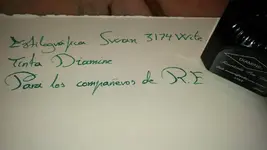 Estilográfica Svoan 3174 Wite
Tinta Diamine
Para los compañeros de R.E